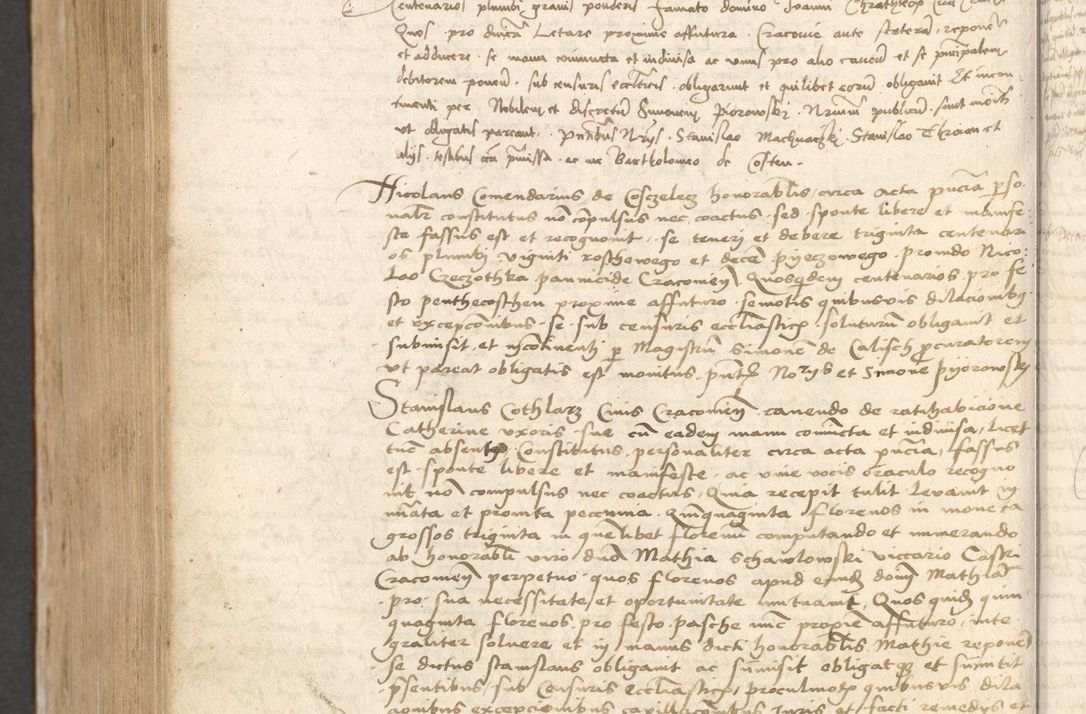 Centenarios plumbi gravis ponderis famato domino Joanni
Quos pro dnica Letare proxime affutura Cracovie ante stateram reponere
et adducere se manu coniuncta et indivisa ac unus pro alio cavens et se principalem
debitorem ponens sub censuris eccticis obligarunt et quilibet eorum obligavit Et incon
tinenti per Nobilem et discretum Simonem Piorowski Nrium publicum sunt moniti
ut obligatis pareant pntibus Nrijs Stanislao Machnaczki Stanislao et
alijs testibus circa pmissa ac me Bartholomeo de Costen
Nicolaus Comendarius de Cosczelecz honorabilis circa acta pncia perso
naliter constitutus non compulsus nec coactus sed sponte libere et manife
ste fassus est et recognovit se teneri et debere triginta centenari
os plumbi viginti roschewego et decem pyeczowego provido Nico
lao Czeczothka pannicide Cracovien Quosquidem centenarios pro fe
sto penthecosthen proxime affuturo semotis quibusvis dilacionibus
et excepcionibus se sub censuris ecclesiasticis soluturum obligavit et
submisit et incontinenti per Magistrum Simonem de Calisch procuratorem
ut pareat obligatis est monitus pntibus Norijs et Simone pyorowsky
Stanislaus Cothlarz Civis Cracovien cavendo de ratihabicione
Catherine uxoris sue cum eadem manu coniuncta et indivisa licet
tunc absentis Constitutus personaliter circa acta pncia fassus
est sponte libere et manifeste ac vive vocis oraculo recogno
vit non compulsus nec coactus Quia recepit tulit levavit in
mutata et prompta pecunia Quinquaginta florenos in moneta
grossos triginta in quemlibet florenum computando et numerando
ab honorabili viro dno Mathia Schawlowski viccario Castri
Cracovien perpetuo quos florenos apud eundem dominum Mathiam
pro sua necessitate et oportunitate mutuavit Quos quidem quin
quaginta florenos pro festo pasche nunc proxime affuturo inte
graliter solvere et in manus dicti honorabilis Mathie reponere
se dictus stanislaus obligavit ac summisit obligatque et summittit
presentibus sub Censuris ecclesiasticis proculmotis quibusvis dila
cionibus excepcionibus cavillacionibus Iuris et facti remedijs et